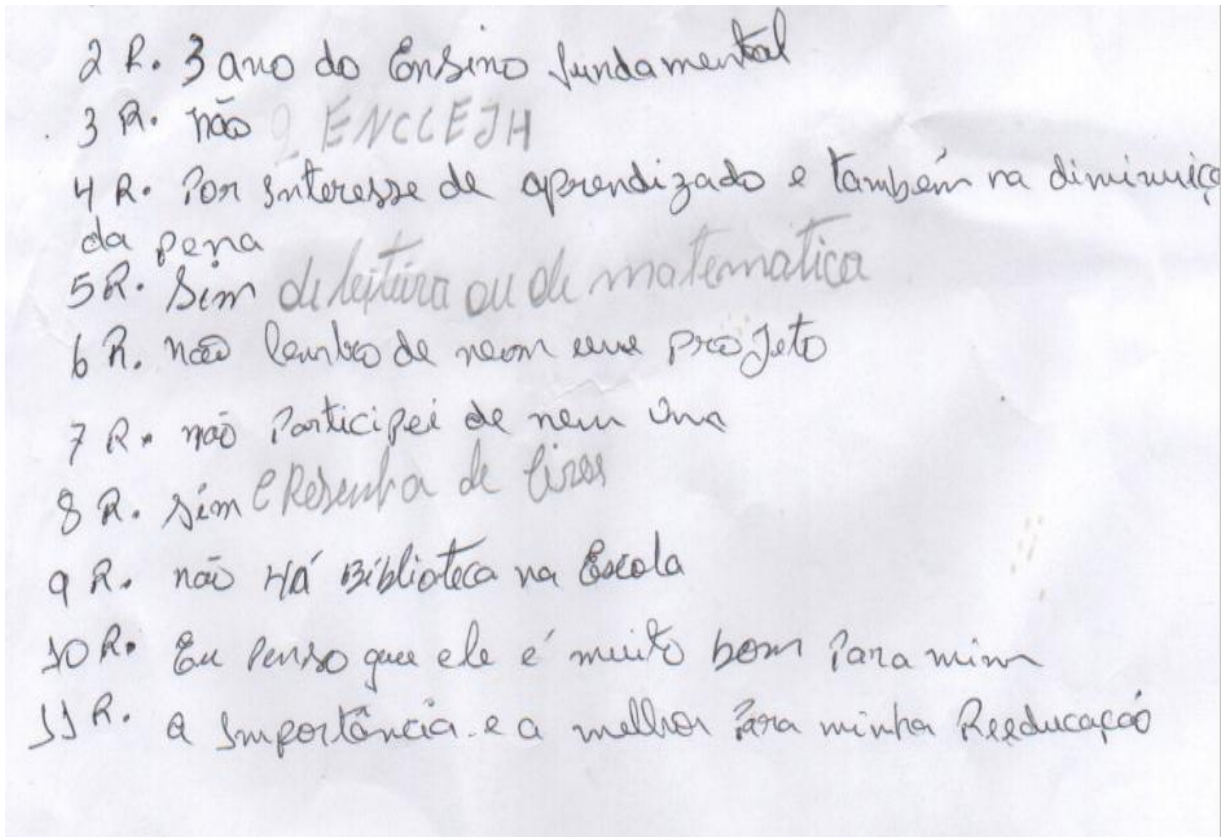 2 R. 3 ano do Ensino fundamental
3 R. não ENCCEJH
4 R. Por interesse de aprendizado e também na diminuiç
da pena
5 R. Sim de leitura ou de matematica
6 R. não lembro de neom projeto
7 R. não Participei de nem uma
8 R. sim e Resenha de liros
9 R. não HÁ Biblioteca na Escola
10 R. Eu Penso que ele é muito bom Para mim
11 R. a Importância e a melhor Para minha Reeducação